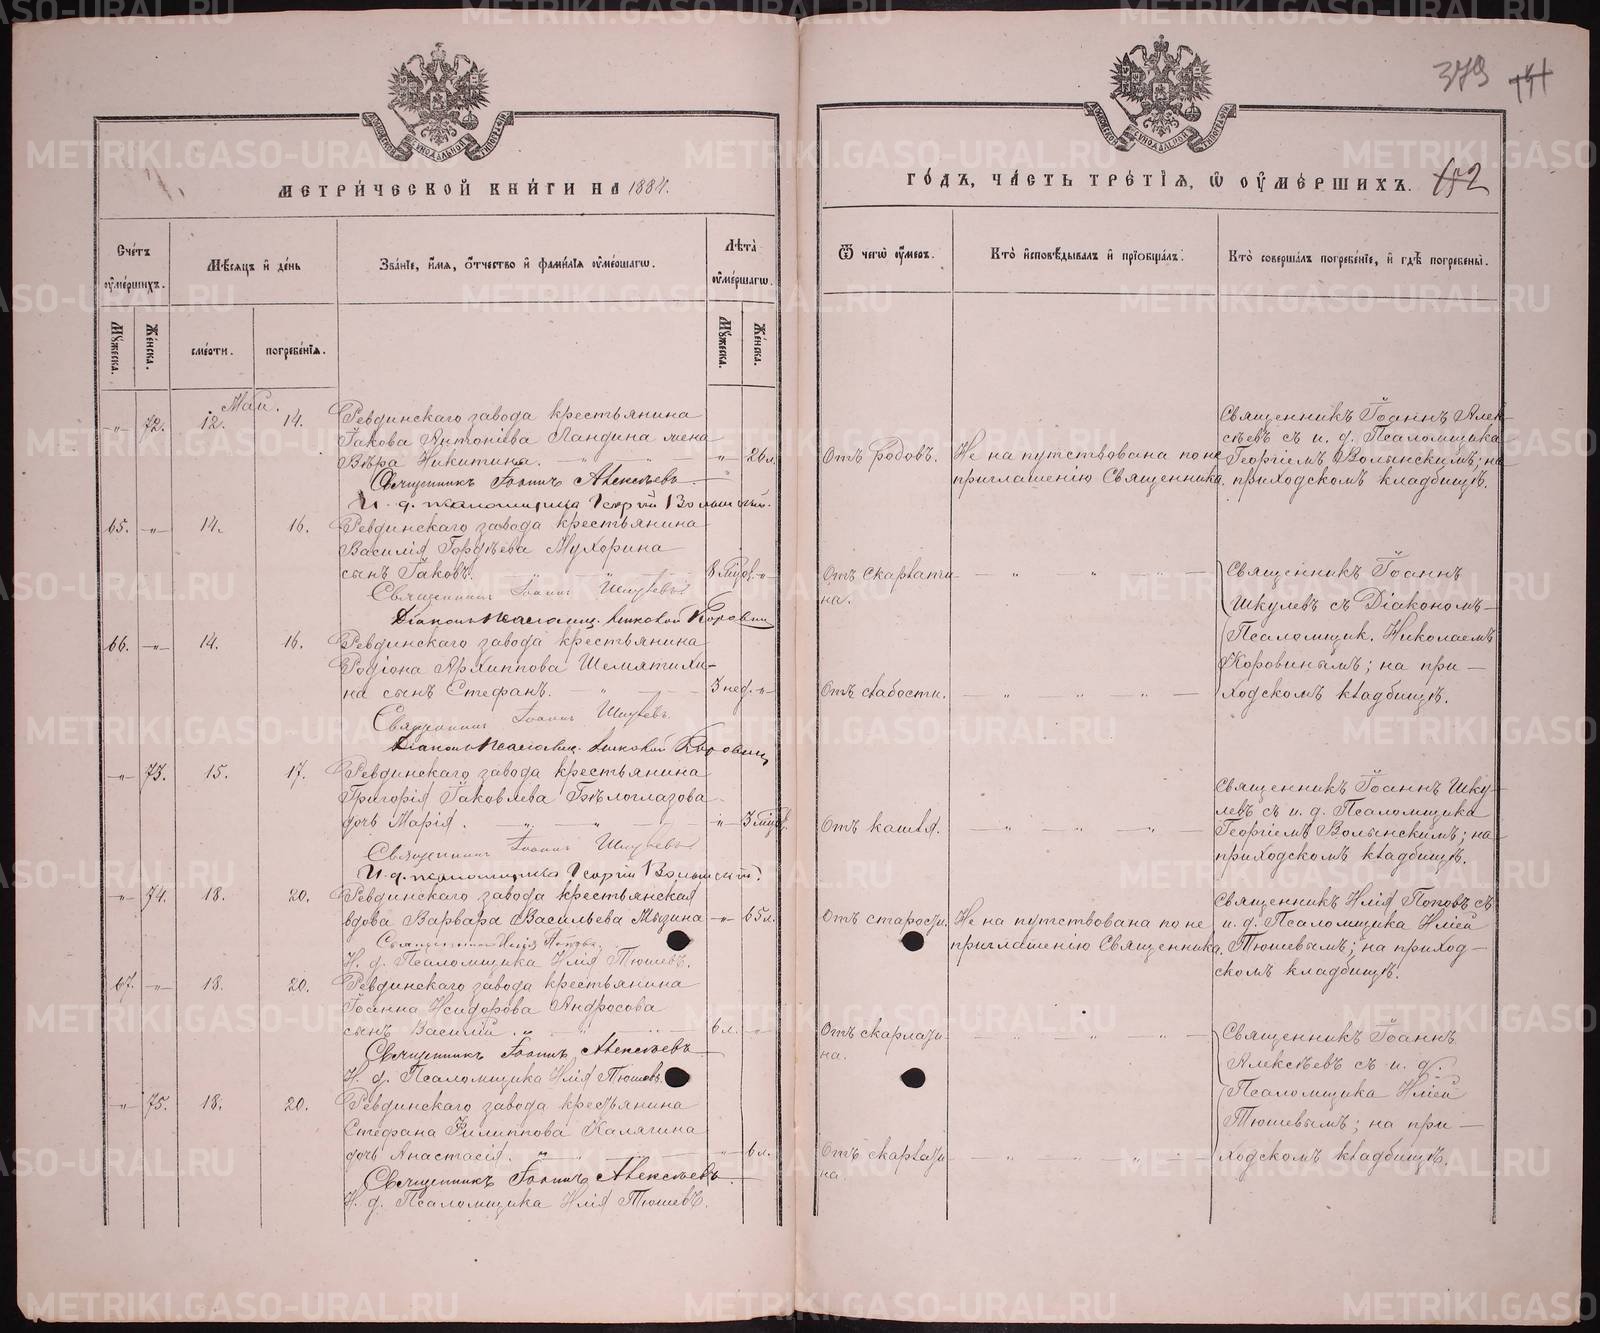 МЕТРИЧЕСКОЙ КНИГИ НА 1884.
Счетъ оумершихъ.
Мѣсяцъ и день
Званіе, имя, отчество и фамилія оумершагѡ.
Лѣта оумершагѡ.
Мужеска.
Женска.
смерти.
погребенія.
Мужеска.
Женска.
Май.
-„- 72. 12. 14. Ревдинскаго завода крестьянина
Іакова Антоніева Ландина жена
Вѣра Никитина. -„- 26 л.
Священникъ Іоаннъ Алексѣевъ
И. д. псаломщика Георгій Волынскій.
65. -„- 14. 16. Ревдинскаго завода крестьянина
Василія Гордѣева Мухорина
сынъ Іаковъ. 8 мѣс. -„-
Священникъ Іоаннъ Шкулевъ
Діаконъ Псаломщ. Николай Коровинъ
66. -„- 14. 16. Ревдинскаго завода крестьянина
Родіона Архиппова Шемятихи-
на сынъ Стефанъ. 3 нед. -„-
Священникъ Іоаннъ Шкулевъ
Діаконъ Псаломщ. Николай Коровинъ
-„- 73. 15. 17. Ревдинскаго завода крестьянина
Григорія Іаковлева Бѣлоглазова
дочь Марія. -„- 3 мѣс.
Священникъ Іоаннъ Шкулевъ
И. д. псаломщика Георгій Волынскій.
-„- 74. 18. 20. Ревдинскаго завода крестьянская
вдова Варвара Васильева Мызина -„- 65 л.
Священникъ Илія Поповъ.
И. д. Псаломщика Илія Тюшевъ.
67. -„- 18. 20. Ревдинскаго завода крестьянина
Іоанна Исидорова Андросова
сынъ Василій. 6 л. -„-
Священникъ Іоаннъ Алексѣевъ
И. д. Псаломщика Илія Тюшевъ.
-„- 75. 18. 20. Ревдинскаго завода крестьянина
Стефана Филиппова Калягина
дочь Анастасія. -„- 6 л.
Священникъ Іоаннъ Алексѣевъ.
И. д. Псаломщика Илія Тюшевъ.
379
ГОДЪ, ЧАСТЬ ТРЕТІЯ, Ѡ ОУМЕРШИХЪ.
Ѿ чегѡ оумеръ.
Кто исповѣдывалъ и пріобщалъ.
Кто совершалъ погребеніе, и гдѣ погребены.
Отъ родовъ.
Не на путствована по не
приглашенію Священника.
Священникъ Іоаннъ Алек-
сѣевъ съ и. д. Псаломщика
Георгіемъ Волынскимъ; на
приходскомъ кладбищѣ.
Отъ скарлати-
на.
Отъ слабости.
Священникъ Іоаннъ
Шкулевъ съ Діакономъ-
Псаломщик. Николаемъ
Коровинымъ; на при-
ходскомъ кладбищѣ.
Отъ кашля.
Священникъ Іоаннъ Шку-
левъ съ и. д. Псаломщика
Георгіемъ Волынскимъ; на
приходскомъ кладбищѣ.
Отъ старости.
Не на путствована по не
приглашенію Священника.
Священникъ Илія Поповъ съ
и. д. Псаломщика Иліей
Тюшевымъ; на приход-
скомъ кладбищѣ.
Отъ скарлати-
на.
Отъ скарлати-
на.
Священникъ Іоаннъ
Алексѣевъ съ и. д.
Псаломщика Иліей
Тюшевымъ; на при-
ходскомъ кладбищѣ.
METRIKI.GASO-URAL.RU